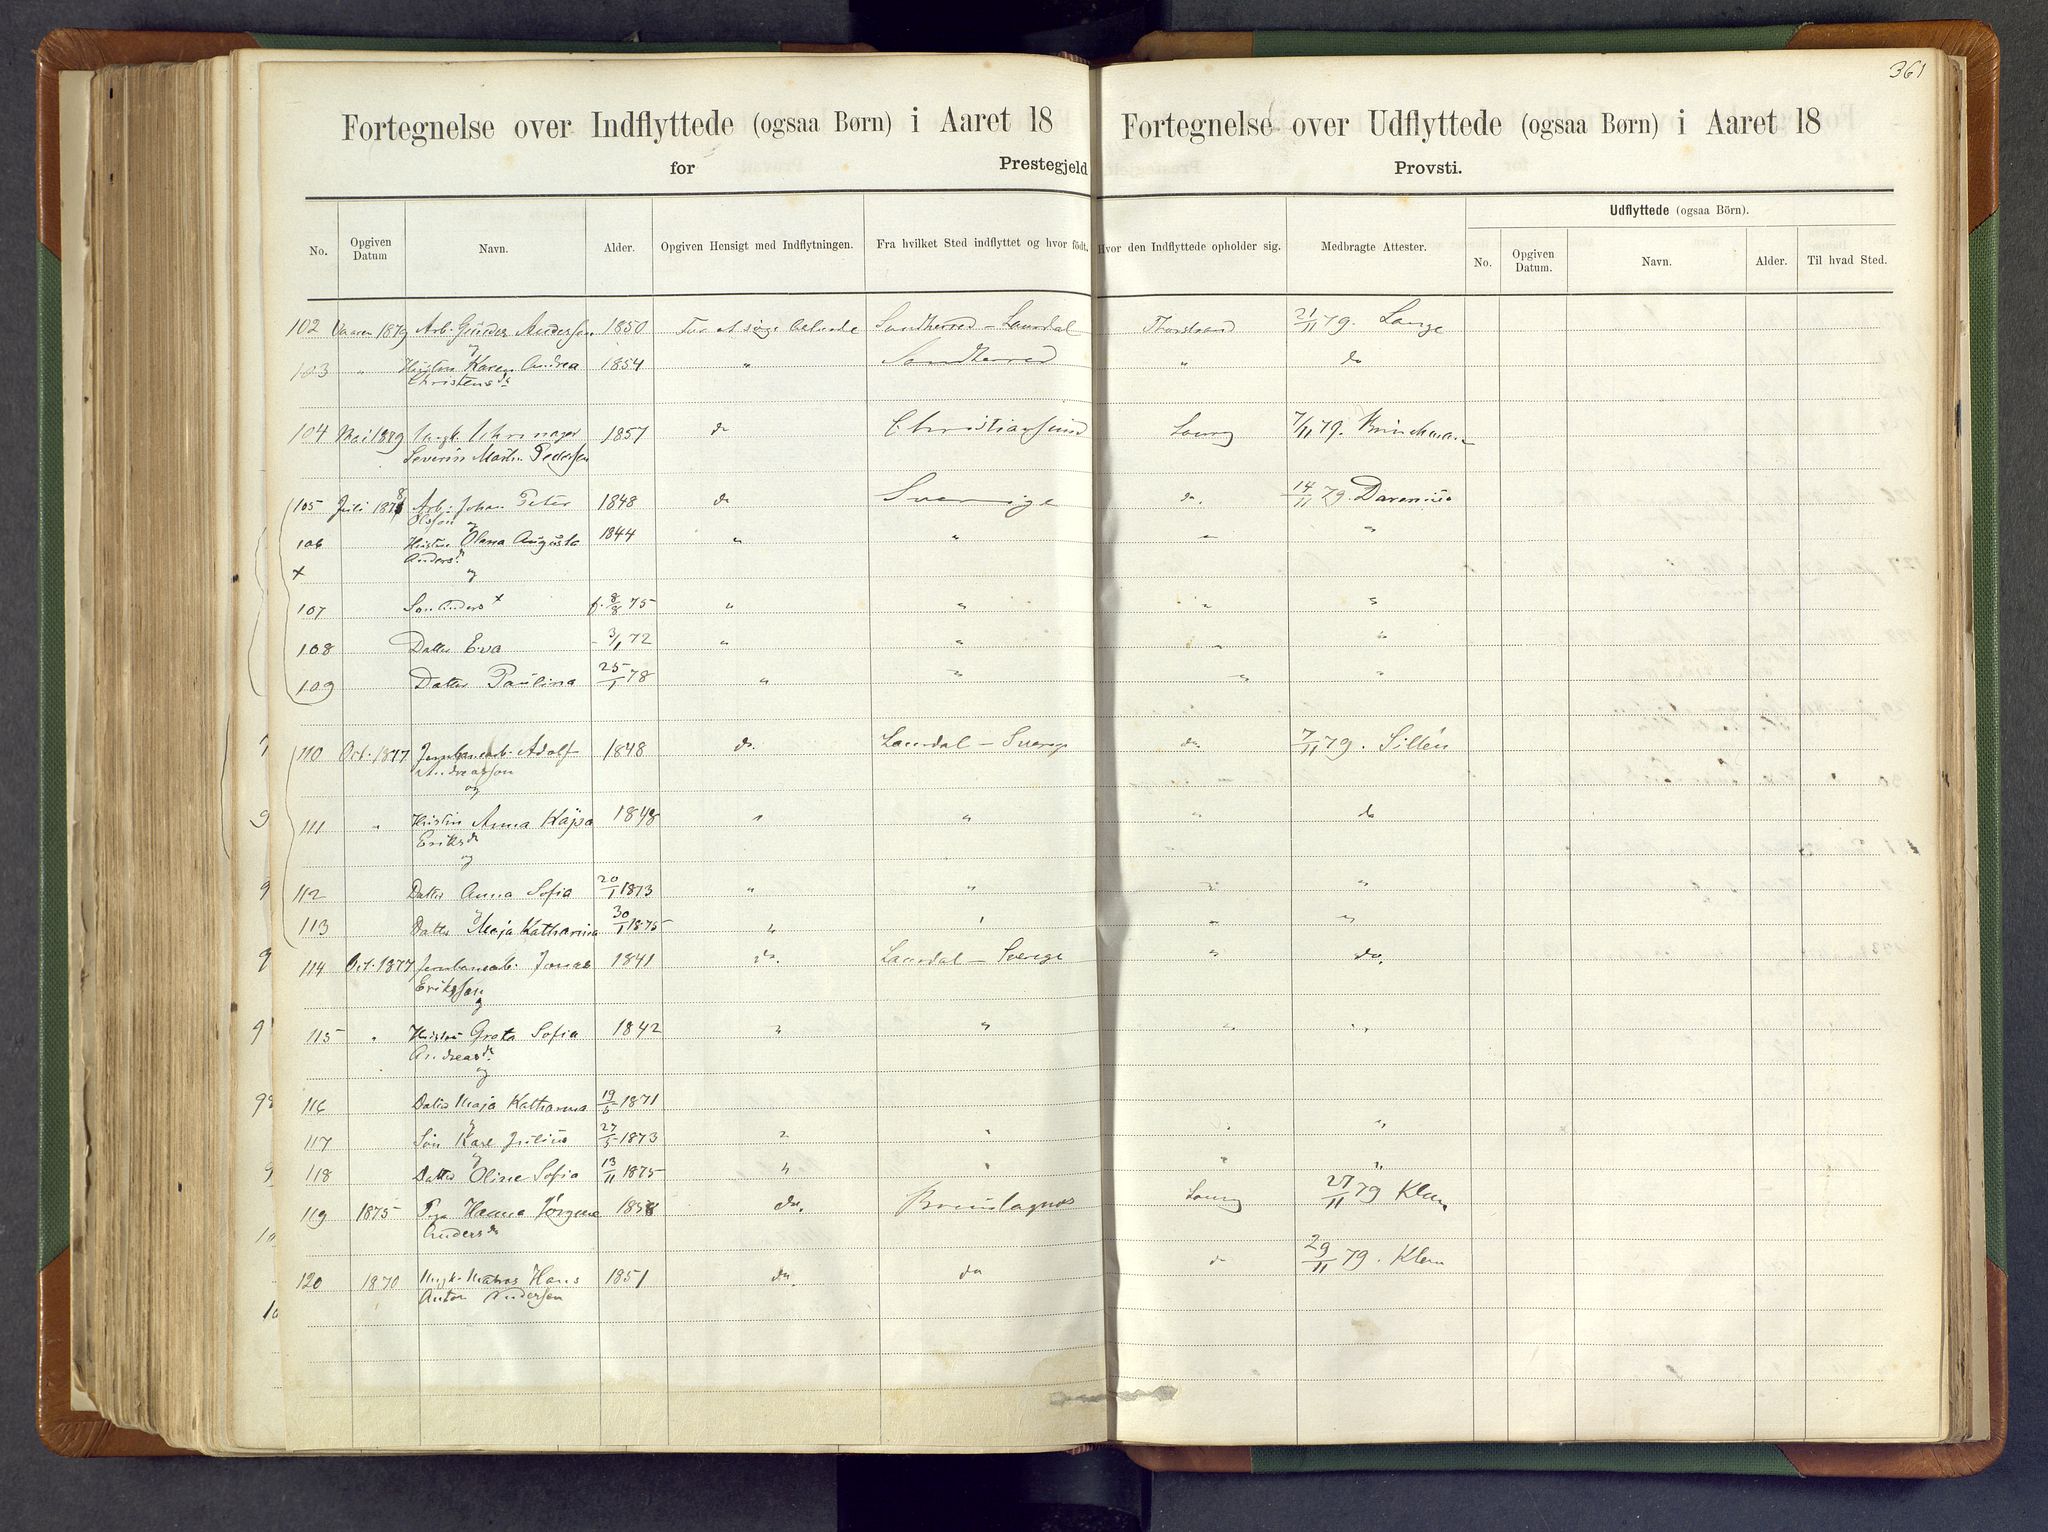 361
Fortegnelse over Indflyttede (ogsaa Børn) i Aaret 18
for Prestegjeld
Fortegnelse over Udflyttede (ogsaa Børn) i Aaret 18
Provsti.
Udflyttede (ogsaa Börn).
No. Opgiven Datum Navn. Alder. Opgiven Hensigt med Indflytningen. Fra hvilket Sted indflyttet og hvor födt. Hvor den Indflyttede opholder sig. Medbragte Attester. No. Opgiven Datum. Navn. Alder. Til hvad Sted.
102 Vaaren 1879 Arb. Gunder Andersen 1850 For at søge Sandherred - Laurdal 21/11 79. Lange
og
103 " Hustru Karen Andrea 1854 " Sandherred " do
Christensdr
104 Mai 1889 Ungk. 1857 do Christiansund Laurv 7/11 79. Brinchmann
Severin Martin Pedersen
105 Juli 1878 Arb. Johan Peter 1848 do Sverige do. 14/11 79. Darenius
Olsson og
106 Hustru Olana Augusta 1844 " " " "
Andersdr
x og
107 Søn Anders x f. 8/8 75 " " " "
108 Datter Eva - 3/1 72 " " " "
109 Datter Paulina 25/1 78 " " " "
110 Oct. 1877 Jernbanearb. Adolf 1848 do. Laurdal - Sverige do. 7/11 79. Sillén
Andreasson
og
111 " Hustru Anna Kajsa 1848 " " " do
Eriksdr
og
112 Datter Anna Sofia 20/1 1873 " " " "
og
113 Datter Maja Katharina 30/1 1875 " " " "
114 Oct. 1877 Jernbanearb. Jonas 1841 do. Laurdal - Sverige " do.
Eriksson
og
115 " Hustru Greta Sofia 1842 " " " "
Andreasdr
og
116 Datter Maja Katharina 19/6 1871
og
117 Søn Karl Julius 27/5 1873 " " " "
og
118 Datter Oline Sofia 13/11 1875 " " " "
119 1875 Pige Hanna Jørgine 1858 do. Brunlagnes Laurv 27/11 79 Klem
Andersdr
120 1870 Ungk. Matros Hans 1851 do. do d 29/11 79. Klem
Anton Andersen